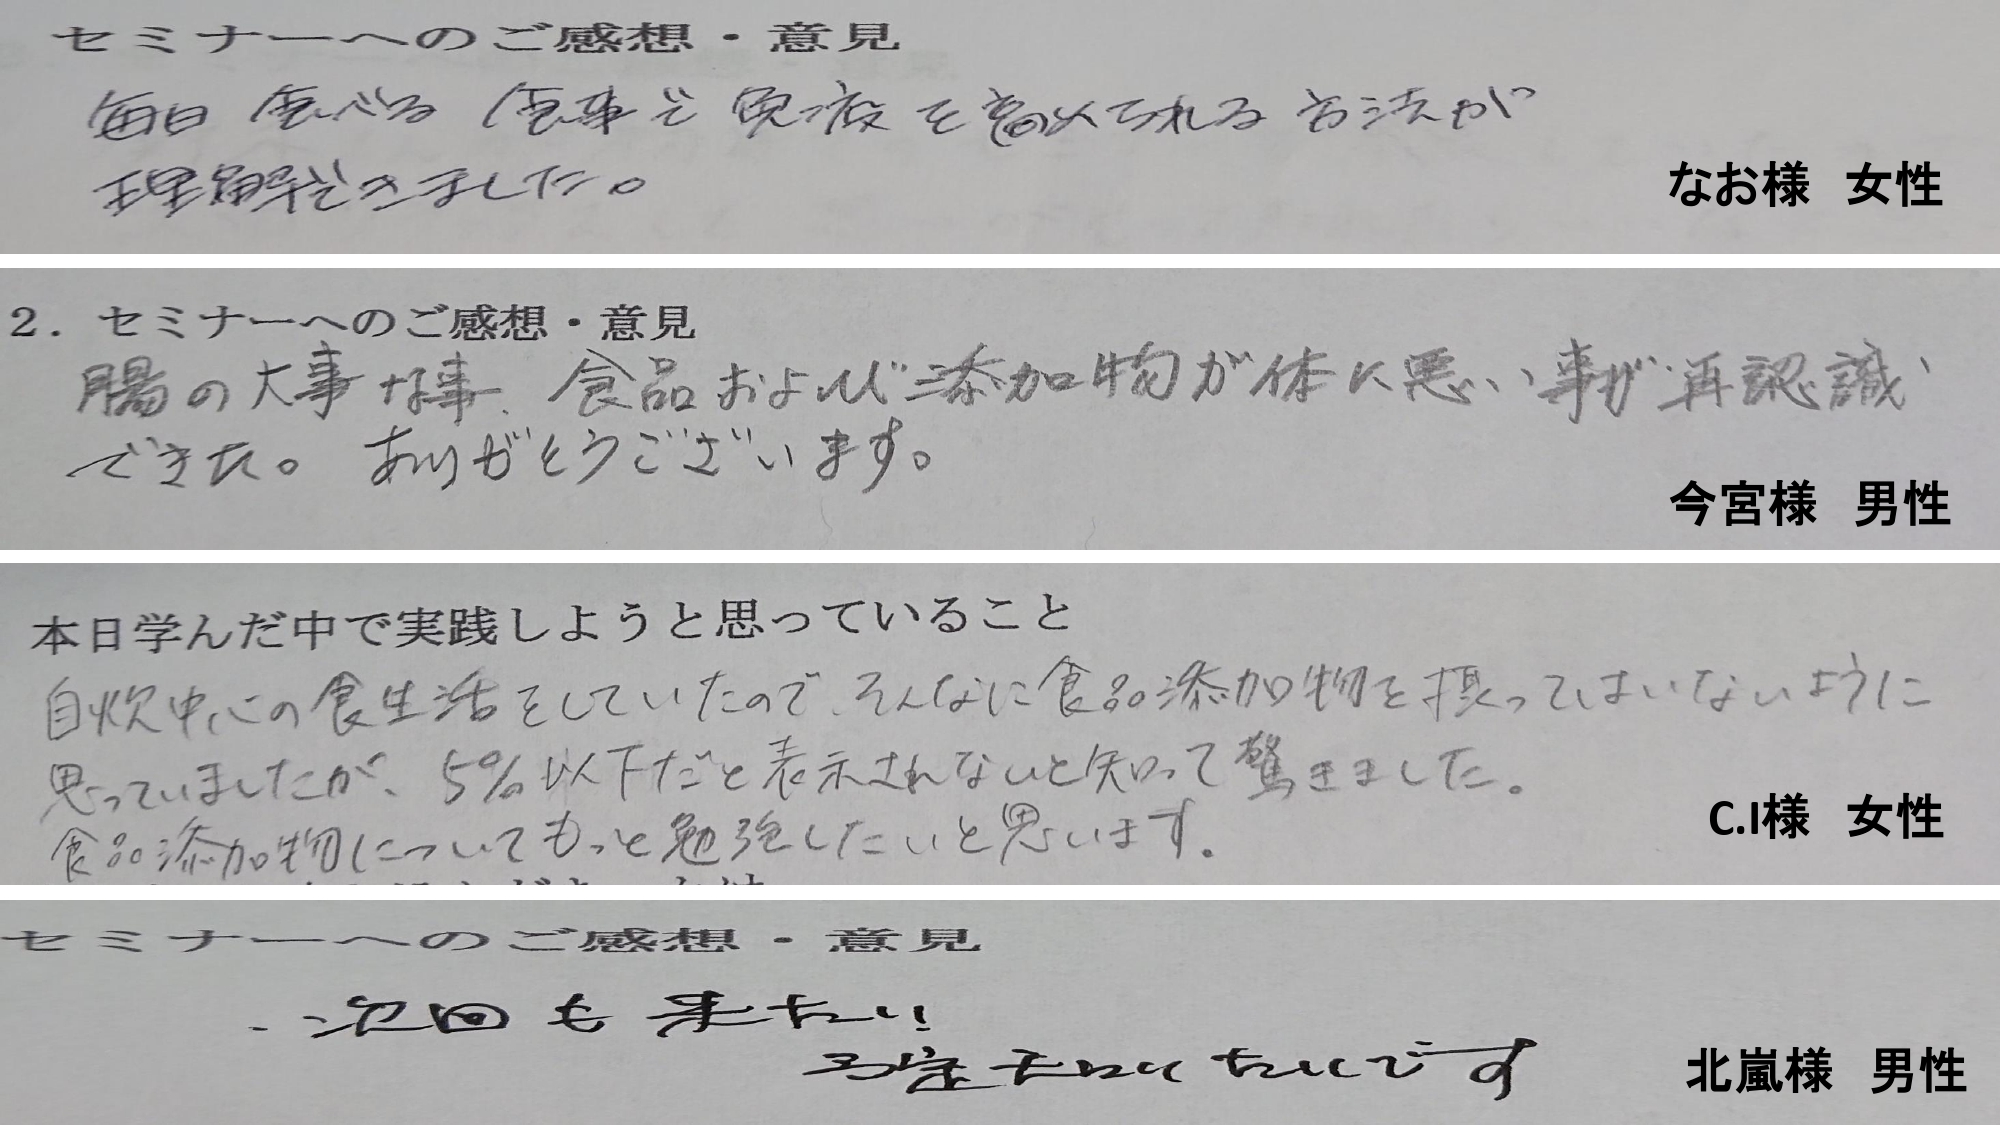 セミナーへのご感想・意見
毎日食べる食事で免疫を高められる方法が
理解できました。
なお様 女性
2. セミナーへのご感想・意見
腸の大事な事、食品および添加物が体に悪い事が再認識
できた。ありがとうございます。
今宮様 男性
本日学んだ中で実践しようと思っていること
自炊中心の食生活をしていたので、そんなに食品添加物を摂ってはいないように
思っていましたが、5%以下だと表示されないと知って驚きました。
食品添加物についてもっと勉強したいと思います。
C.I様 女性
セミナーへのご感想・意見
・次回も来たい
予定 たいです
北嵐様 男性